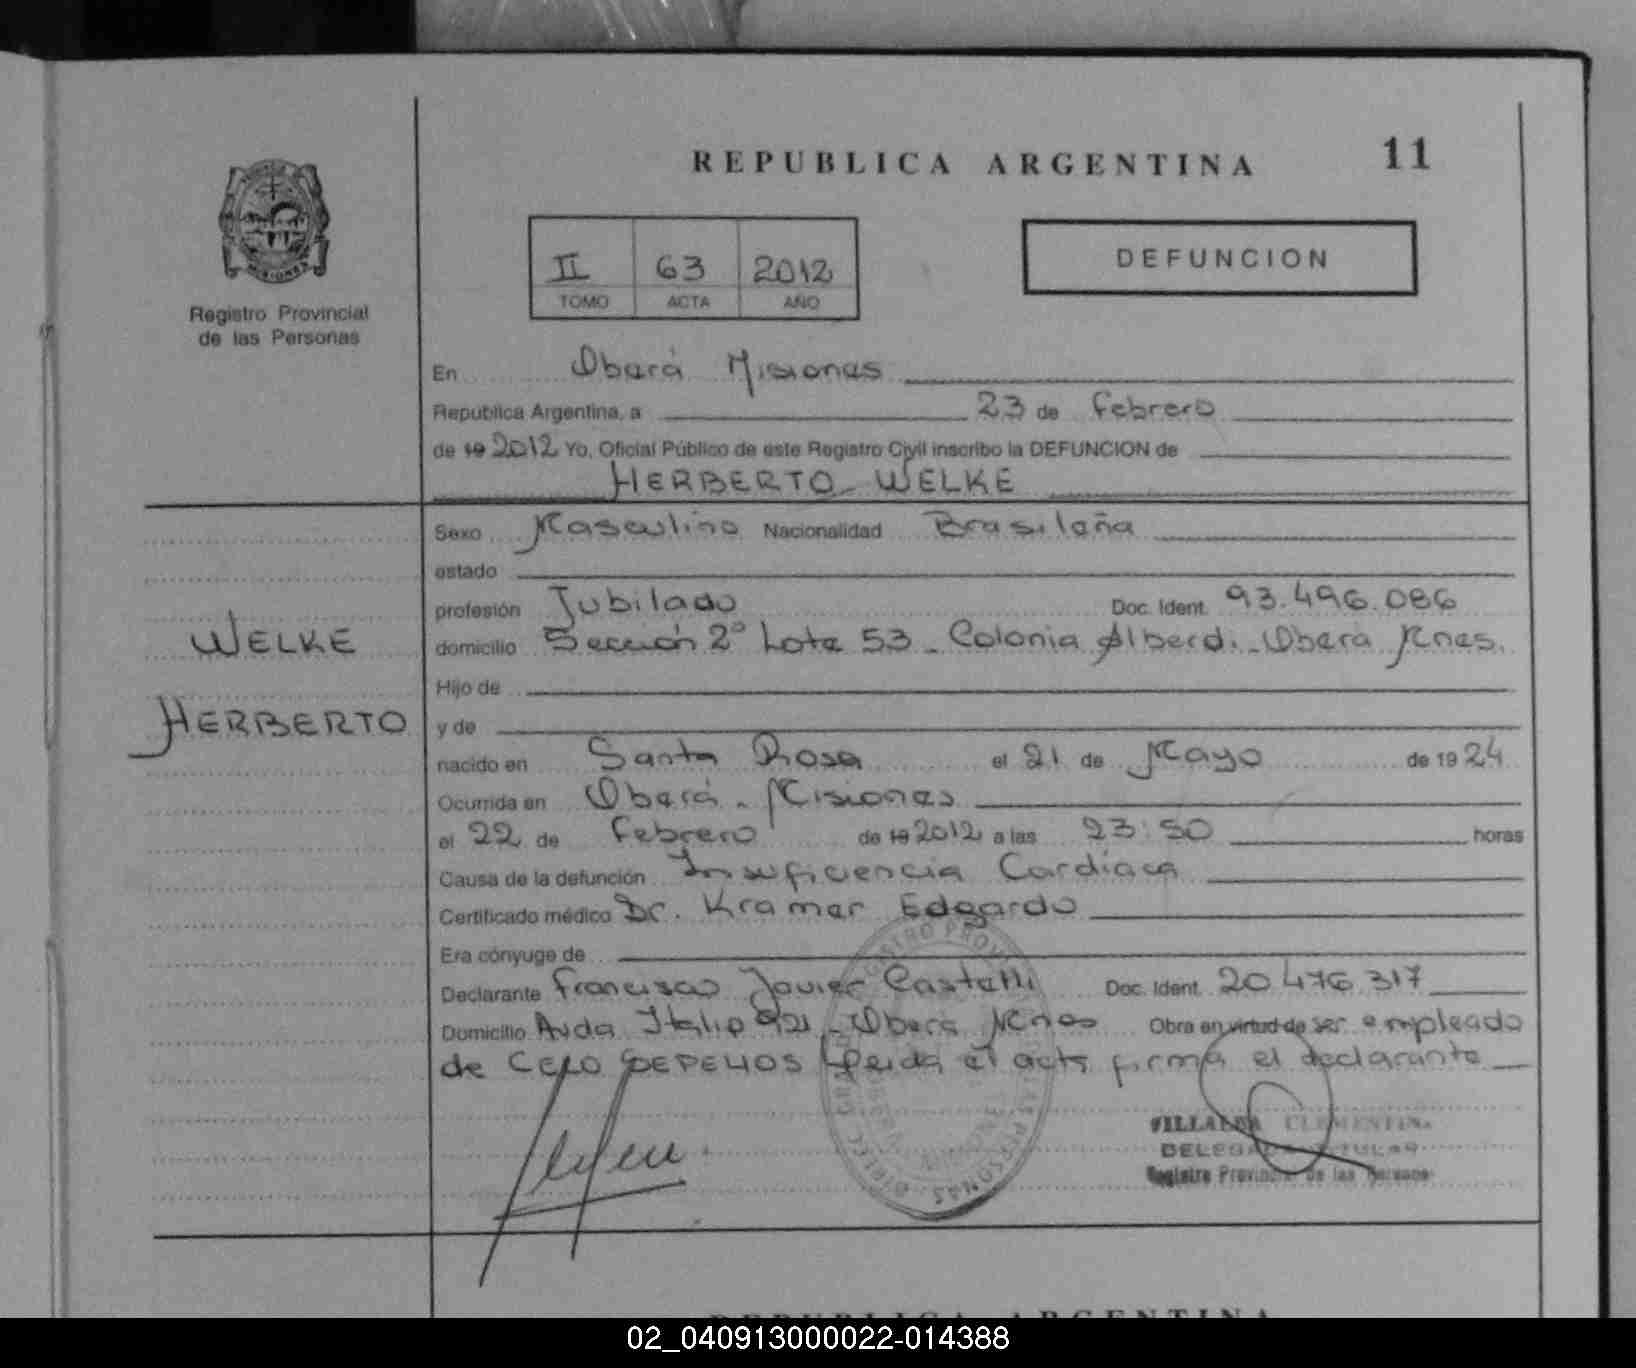 REPUBLICA ARGENTINA
11
MISIONES
Registro Provincial
de las Personas
II 63 2012
TOMO ACTA AÑO
DEFUNCION
En Oberá Misiones
Republica Argentina, a 23 de Febrero
de 19 2012 Yo, Oficial Público de este Registro Civil inscribo la DEFUNCION de
HERBERTO WELKE
Sexo Masculino Nacionalidad Brasileña
estado
profesión Jubilado Doc. Ident. 93.496.086
WELKE
HERBERTO
domicilio Sección 2° Lote 53 - Colonia Alberdi - Oberá Mnes.
Hijo de
y de
nacido en Santa Rosa el 21 de Mayo de 19 24
Ocurrida en Oberá - Misiones
el 22 de Febrero de 19 2012 a las 23:50 horas
Causa de la defunción Insuficiencia Cardíaca
Certificado médico Dr. Kramer Edgardo
Era cónyuge de
Declarante Francisco Javier Castelli Doc. Ident. 20.476.317
Domicilio Avda Italia 921 - Oberá Mnes Obra en virtud de ser empleado
de CELO SEPELIOS Leida el acta firma el declarante
VILLALBA CLEMENTINA
DELEGADA TITULAR
Registro Provincial de las Personas
REPUBLICA ARGENTINA
02_040913000022-014388